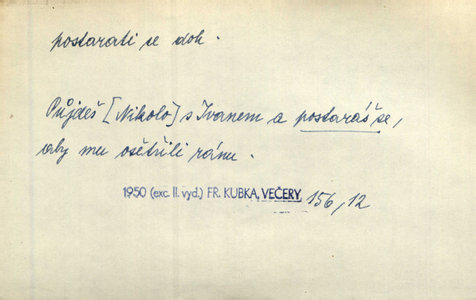 postarati se dok.
Půjdeš [Nikolo] s Ivanem a postaráš se,
aby mu ošetřili ránu.
1950 (exc. II. vyd.) FR. KUBKA, VEČERY, 156, 12